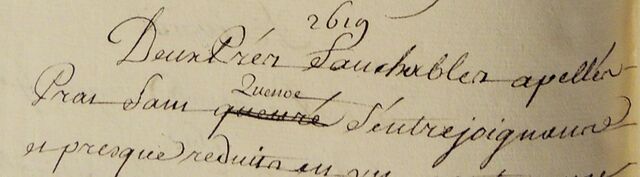 2619
Deux Prés fauchables apellés
Pras Sam Quenoe queuré s'entrejoignans
et presque reduits en un